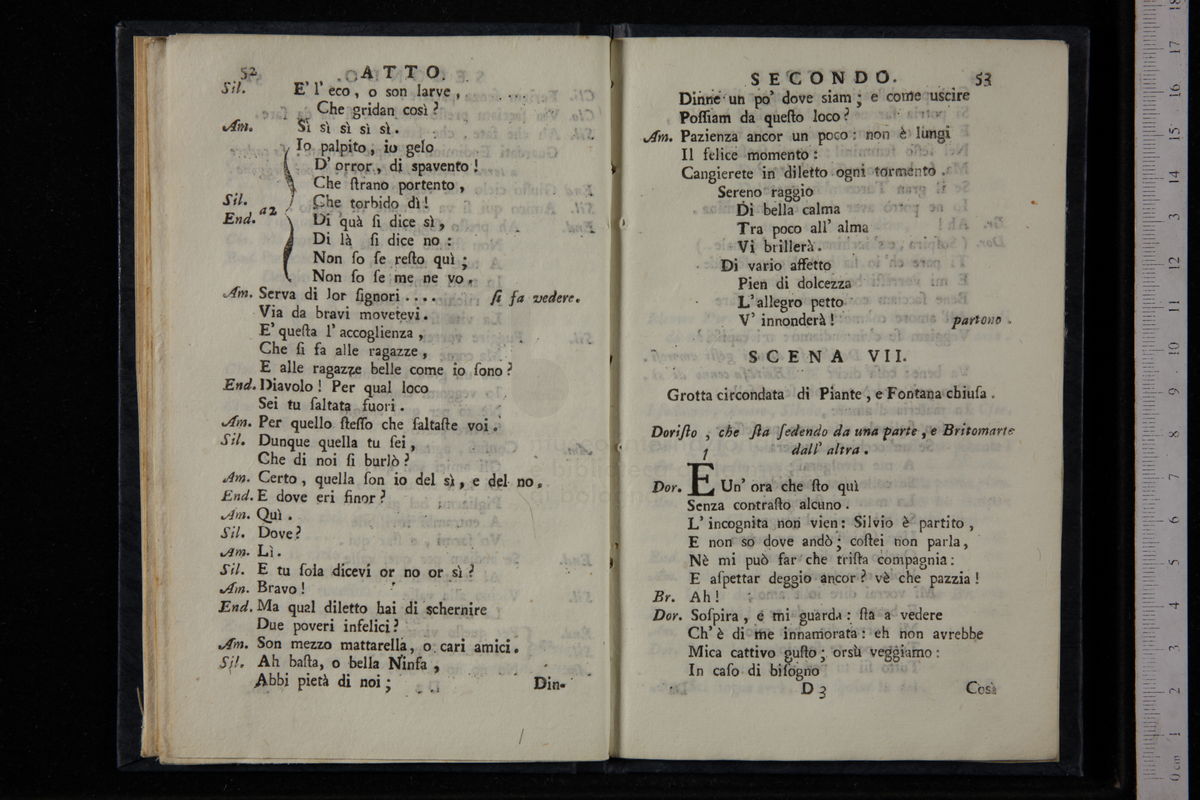 52 ATTO.
Sil. E' l' eco, o son larve,
Che gridan così?
Am. Sì sì sì sì sì.
Io palpito, io gelo
D' orror, di spavento!
Che ſtrano portento,
Sil. Che torbido dì!
End. a2 Di quà ſi dice sì,
Di là ſi dice no:
Non ſo ſe reſto quì;
Non ſo ſe me ne vo.
Am. Serva di lor ſignori.... ſi fa vedere.
Via da bravi movetevi.
E' queſta l' accoglienza,
Che ſi fa alle ragazze,
E alle ragazze belle come io ſono?
End. Diavolo! Per qual loco
Sei tu ſaltata fuori.
Am. Per quello ſteſſo che ſaltaſte voi.
Sil. Dunque quella tu ſei,
Che di noi ſi burlò?
Am. Certo, quella ſon io del sì, e del no.
End. E dove eri finor?
Am. Quì.
Sil. Dove?
Am. Lì.
Sil. E tu ſola dicevi or no or sì?
Am. Bravo!
End. Ma qual diletto hai di schernire
Due poveri infelici?
Am. Son mezzo mattarella, o cari amici.
Sil. Ah baſta, o bella Ninfa,
Abbi pietà di noi;
Din-
SECONDO. 53
Dinne un po' dove siam; e come uscire
Poſſiam da queſto loco?
Am. Pazienza ancor un poco: non è lungi
Il felice momento:
Cangierete in diletto ogni tormento.
Sereno raggio
Di bella calma
Tra poco all' alma
Vi brillerà.
Di vario affetto
Pien di dolcezza
L' allegro petto
V' innonderà! partono.
SCENA VII.
Grotta circondata di Piante, e Fontana chiuſa.
Doriſto, che ſta ſedendo da una parte, e Britomarte
dall' altra.
Dor. E Un' ora che ſto quì
Senza contraſto alcuno.
L' incognita non vien: Silvio è partito,
E non so dove andò; coſtei non parla,
Nè mi può far che triſta compagnia:
E aſpettar deggio ancor? vè che pazzia!
Br. Ah!
Dor. Soſpira, e mi guarda: ſta a vedere
Ch' è di me innamorata: eh non avrebbe
Mica cattivo guſto; orsù veggiamo:
In caſo di biſogno
D 3 Così